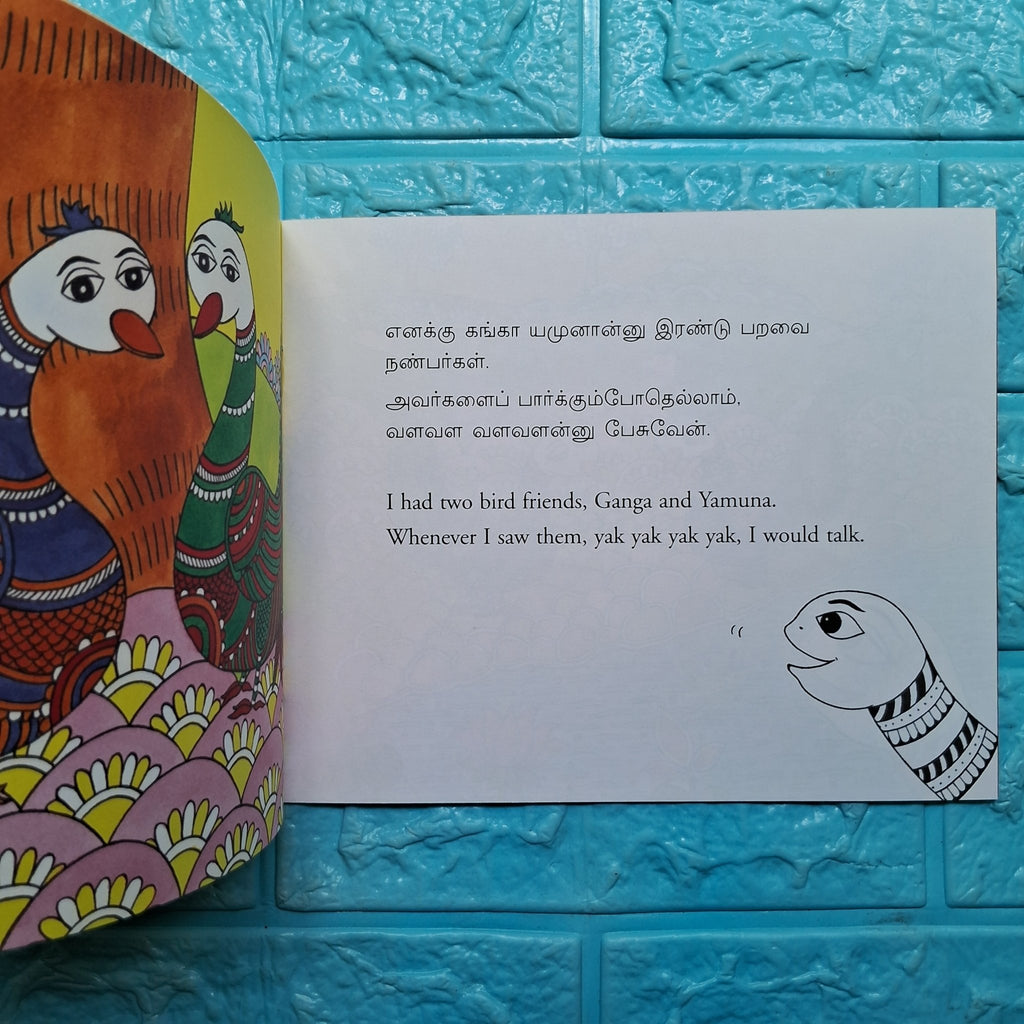 எனக்கு கங்கா யமுனான்னு இரண்டு பறவை
நண்பர்கள்.
அவர்களைப் பார்க்கும்போதெல்லாம்,
வளவள வளவளன்னு பேசுவேன்.
I had two bird friends, Ganga and Yamuna.
Whenever I saw them, yak yak yak yak, I would talk.